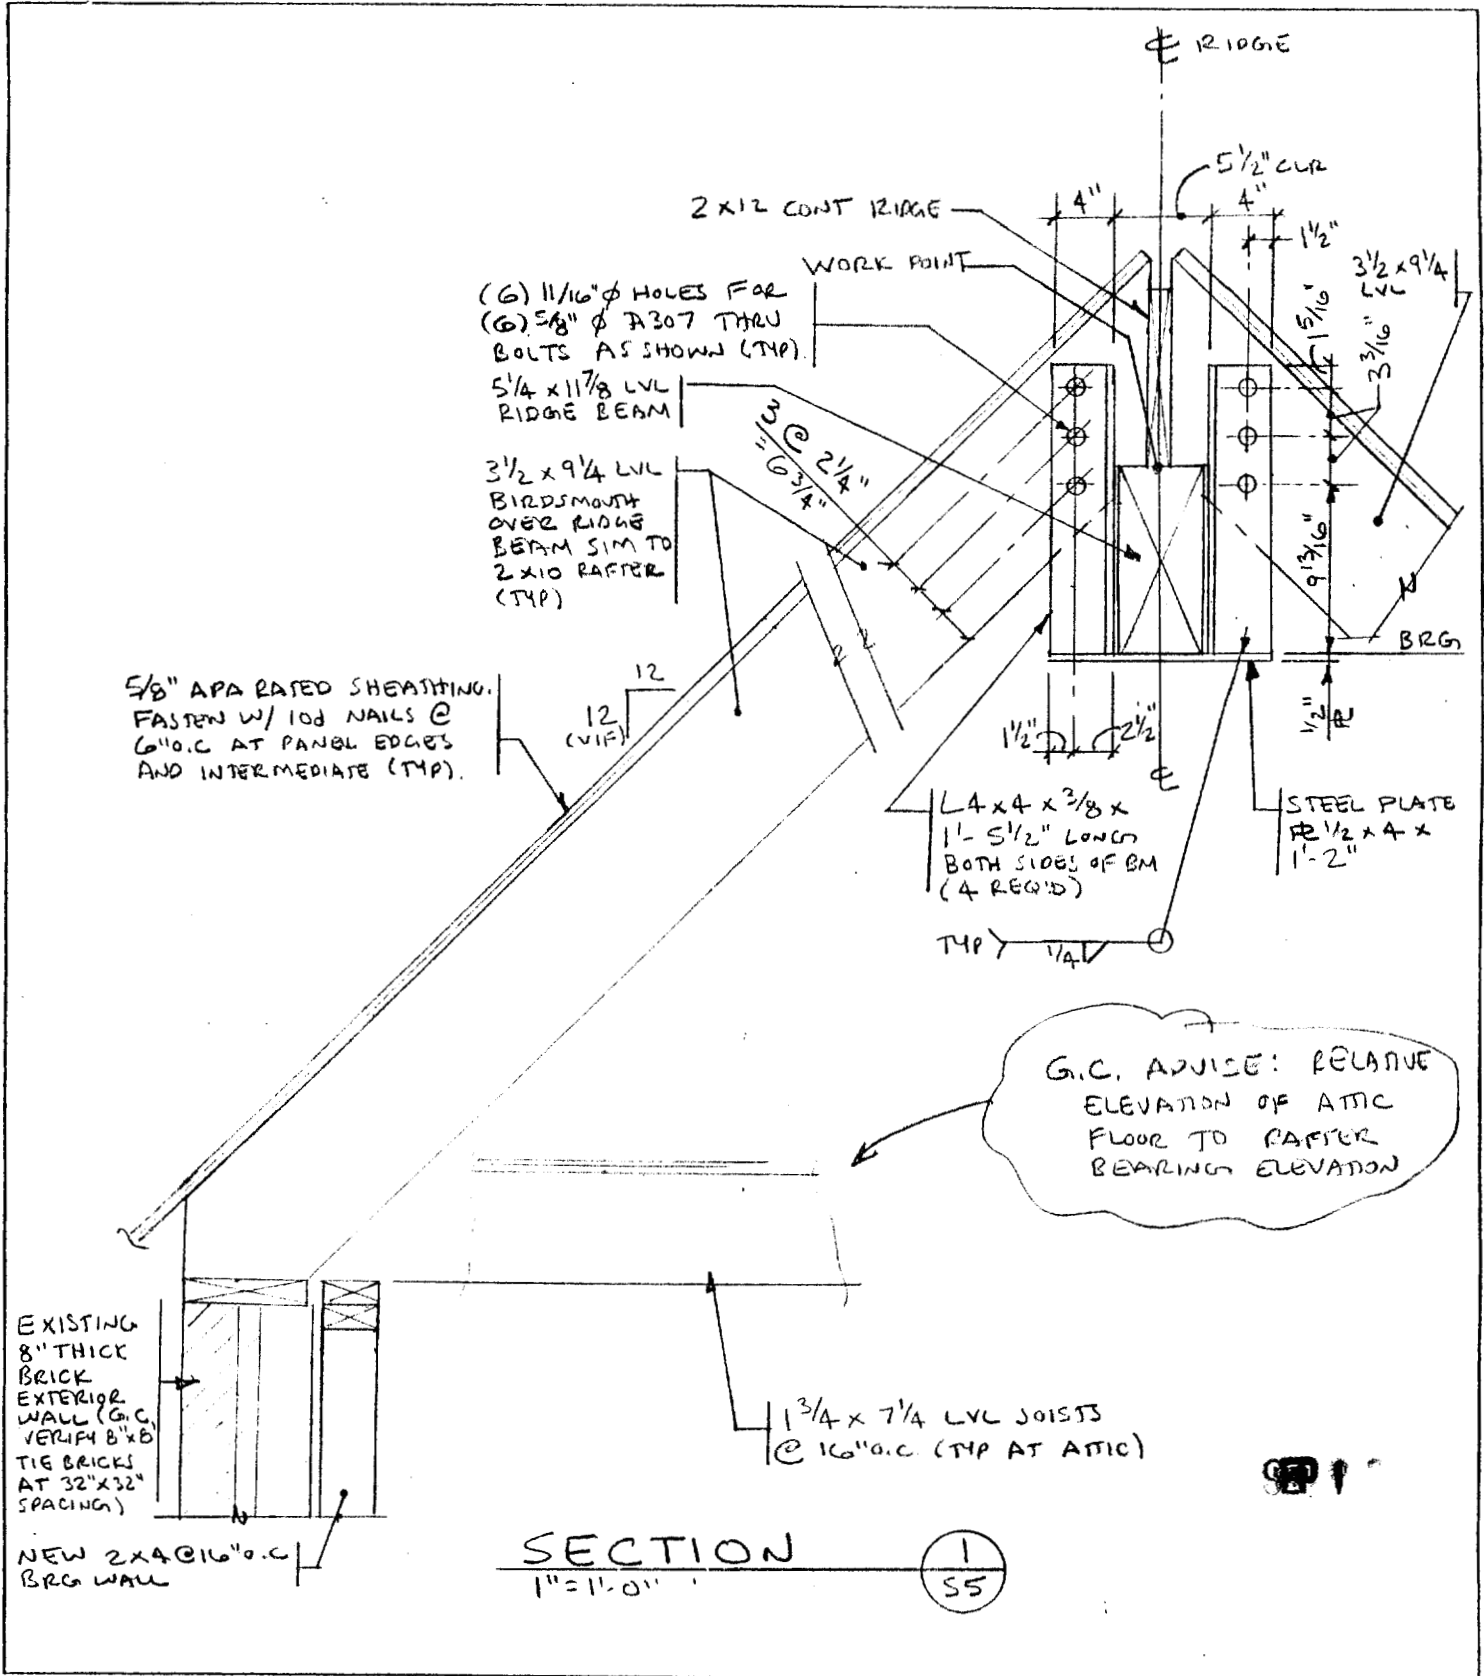 ℄ RIDGE
5 1/2" CLR
4"
4"
1 1/2"
2 x 12 CONT RIDGE
WORK POINT
3 1/2 x 9 1/4
LVL
1 5/16"
3 3/16"
9 13/16"
(6) 11/16" Ø HOLES FOR
(6) 5/8" Ø A307 THRU
BOLTS AS SHOWN (TYP)
5 1/4 x 11 7/8 LVL
RIDGE BEAM
3 @ 2 1/4"
= 6 3/4"
3 1/2 x 9 1/4 LVL
BIRDSMOUTH
OVER RIDGE
BEAM SIM TO
2 x 10 RAFTER
(TYP)
BRG
1/2" ℄
12
12
(VIF)
5/8" APA RATED SHEATHING.
FASTEN W/ 10d NAILS @
6" O.C AT PANEL EDGES
AND INTERMEDIATE (TYP).
1 1/2"
2 1/2"
℄
L 4 x 4 x 3/8 x
1'- 5 1/2" LONG
BOTH SIDES OF BM
(4 REQ'D)
STEEL PLATE
PL 1/2 x 4 x
1'-2"
TYP
1/4
G.C. ADVISE: RELATIVE
ELEVATION OF ATTIC
FLOOR TO RAFTER
BEARING ELEVATION
EXISTING
8" THICK
BRICK
EXTERIOR
WALL (G.C.
VERIFY 8"x8"
TIE BRICKS
AT 32"x32"
SPACING)
NEW 2x4 @ 16" O.C
BRG WALL
1 3/4 x 7 1/4 LVL JOISTS
@ 16" O.C. (TYP AT ATTIC)
SECTION
1"=1'-0"
1
S5